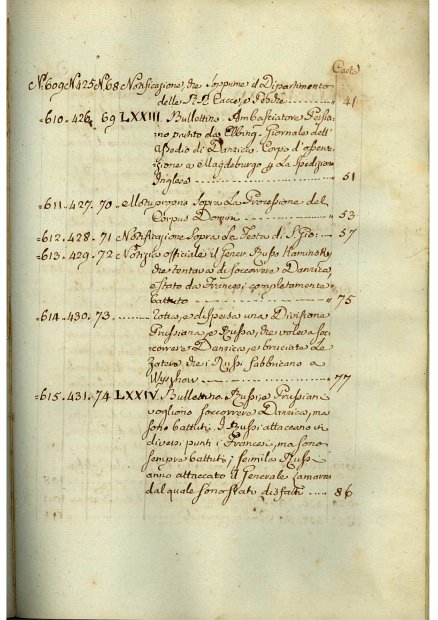 Carta
N.º 609 N.º 425 N.º 68 Notificazione, che sopprime il Dipartimento
delle RR. Cacce, e Pesche ............ 41
=610. 426. 69 LXXIII Bullettino. Ambasciatore Persia-
no partito da Elbing. Giornale dell'
Assedio di Danzica. Corpo d'osser-
vazione a Magdeburgo p la Spedizione
Inglese ............ 51
=611. 427. 70. Motuproprio Sopra La Processione del
Corpus Domini ............ 53
=612. 428. 71 Notificazione Sopra la Festa di S. Gio: ..... 57
=613. 429. 72 Notizia officiale il Gener. Russo Kaminsky
che tentava di soccorrere Danzica,
è stato da Francesi completamente
battuto ............ 75
=614. 430. 73. ......... Rotta, e dispersa una Divisione
Prussiana, e Russa, che voleva soc-
correre Danzica, e bruciate Le
Zatere che i Russi fabbricano a
............ 77
=615. 431. 74 LXXIV. Bullettino. Russi, e Prussiani
vogliono soccorrere Danzica, ma
sono battuti. I Russi attaccano in
diversi punti i Francesi, ma sono
sempre battuti; seimila Russi
anno attaccato il Generale Lamarois
dal quale sono stati disfatti ..... 86